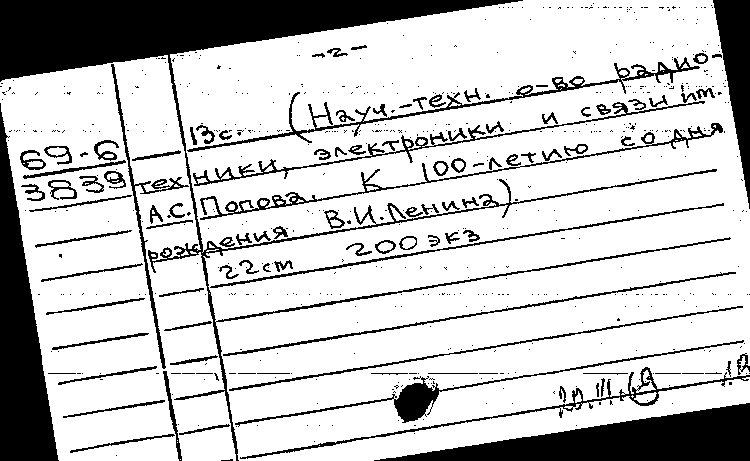 -2-
69-6
3839
13с. (Науч.-техн. о-во радио-
техники, электроники и связи им.
А.С. Попова. К 100-летию со дня
рождения В.И.Ленина).
22см 200 экз
20.III.69